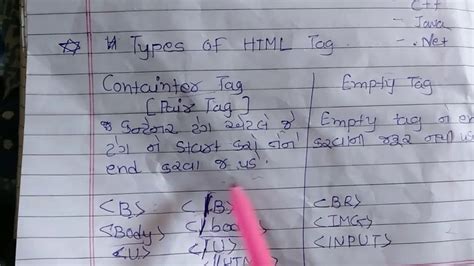 C++
- Java
- .Net
# Types of HTML Tag
Containter Tag
[Pair Tag]
જ કન્ટેનર ટેગ એટલે જે
ટેગ ને start કર્યો તેને
end કરવા જ પડે.
Empty Tag
Empty tag ને en
કરવાની જરૂર નથી
<B> </B>
<Body> </bod
<U> </U>
</HTM
<BR>
<IMG>
<INPUT>